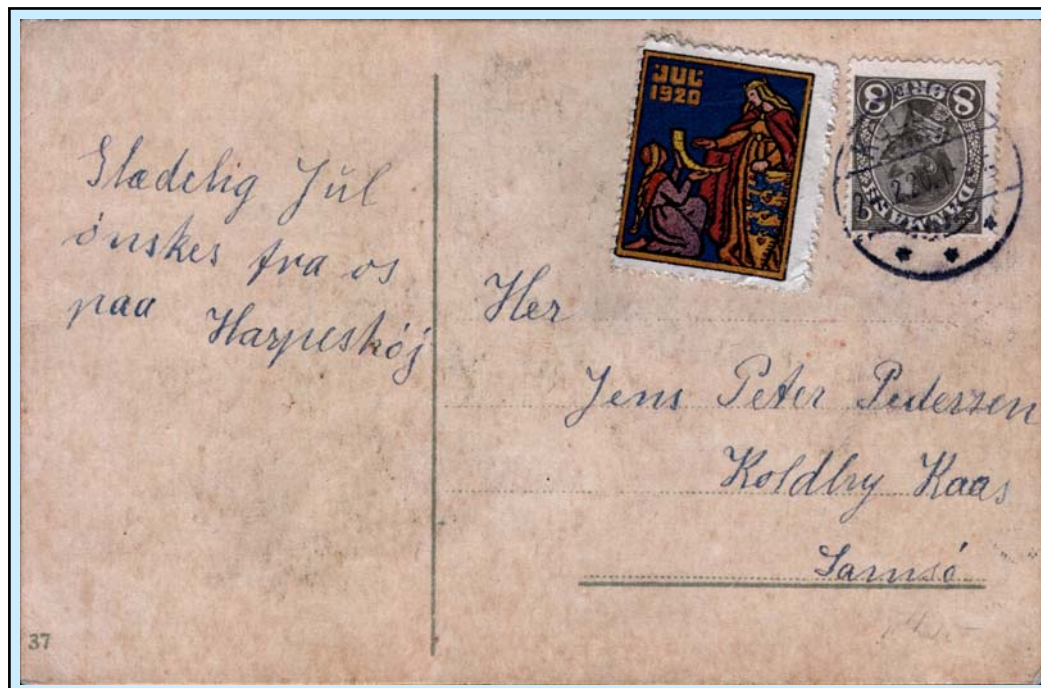 Glædelig Jul
önskes fra os
paa Harpeshöj
JUL
1920
8 ØRE 8
DANMARK
Her
Jens Peter Pedersen
Koldby Kaas
Samsö
37